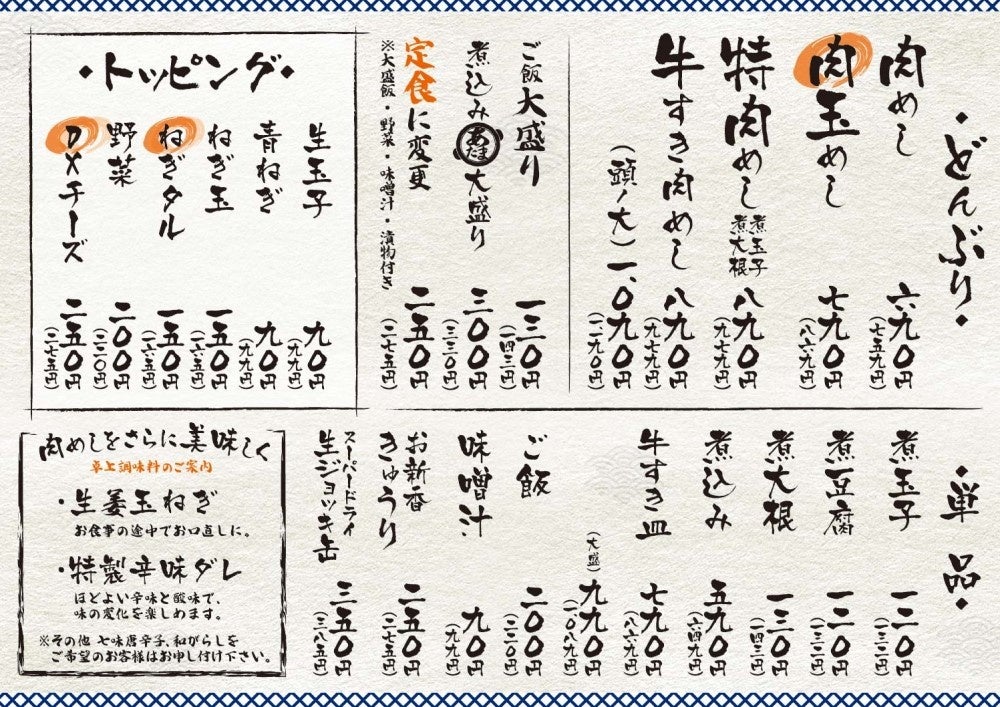 ・どんぶり・
肉めし 六九〇円
(七五九円)
肉玉めし 七九〇円
(八六九円)
特肉めし 煮玉子 煮大根 八九〇円
(九七九円)
牛すき肉めし 八九〇円
(九七九円)
(頭ノ大) 一、〇九〇円
(一一九〇円)
ご飯大盛り 一三〇円
(一四三円)
煮込みあたま大盛り 三〇〇円
(三三〇円)
定食に変更 二五〇円
(二七五円)
※大盛飯・野菜・味噌汁・漬物付き
・トッピング・
生玉子 九〇円
(九九円)
青ねぎ 九〇円
(九九円)
ねぎ玉 一五〇円
(一六五円)
ねぎタル 一五〇円
(一六五円)
野菜 二〇〇円
(二二〇円)
DXチーズ 二五〇円
(二七五円)
・単品・
煮玉子 一二〇円
(一三二円)
煮豆腐 一二〇円
(一三二円)
煮大根 一三〇円
(一四三円)
煮込み 五九〇円
(六四九円)
牛すき皿 七九〇円
(八六九円)
(大盛) 九九〇円
(一、〇八九円)
ご飯 二〇〇円
(二二〇円)
味噌汁 九〇円
(九九円)
お新香
きゅうり 二五〇円
(二七五円)
スーパードライ
生ジョッキ缶 三五〇円
(三八五円)
肉めしをさらに美味しく
卓上調味料のご案内
・生姜玉ねぎ
お食事の途中でお口直しに。
・特製辛味ダレ
ほどよい辛味と酸味で、
味の変化を楽しめます。
※その他 七味唐辛子、和がらしを
ご希望のお客様はお申し付け下さい。